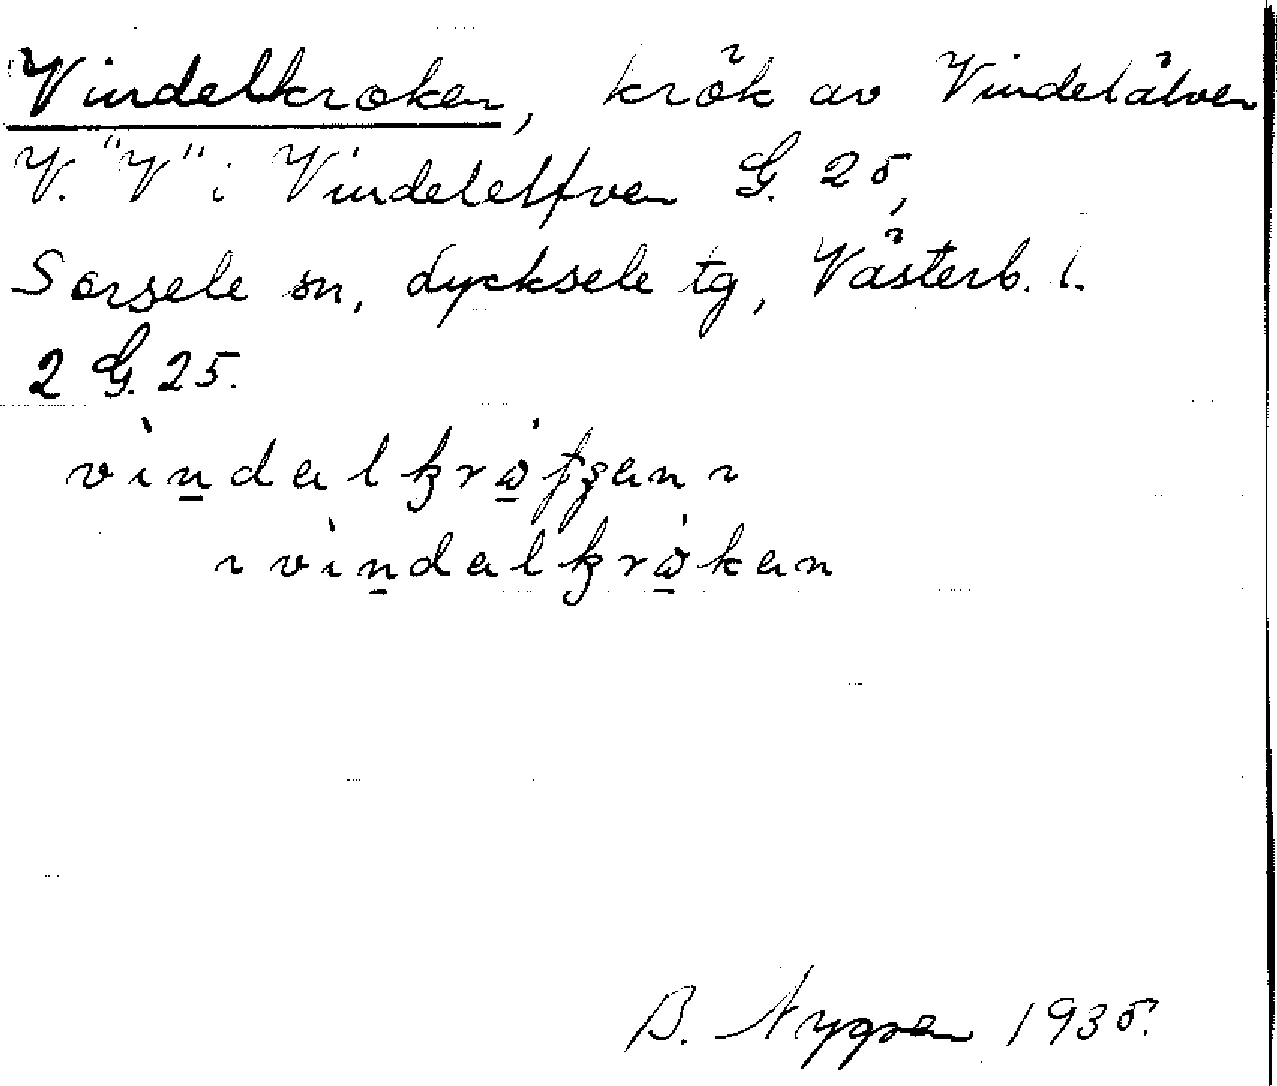 Vindelkroken, krök av Vindelälven
V. "V" i Vindelelfven G. 25,
Sorsele sn, Lycksele tg, Västerb. l.
2 G. 25.
B. Nygren 1935.